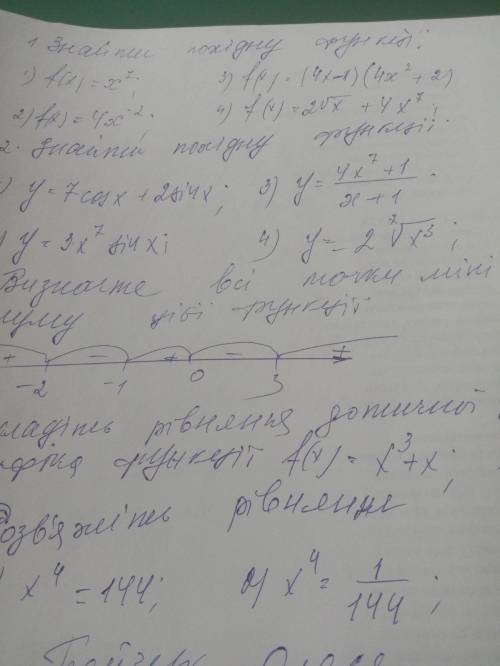 1 Знайти похідну функції:
1) f(x) = x⁷; 3) f(x) = (4x-1)(4x² + 2)
2) f(x) = 4x⁻²; 4) f(x) = 2√x + 4x⁷;
2. Знайти похідну функції:
) y = 7cosx + 2sin4x; 3) y = (4x⁷ + 1)/(x + 1).
y = 3x⁷ sin4x; 4) y = 2 ⁷√x³;
Визначте всі точки міні
муму цієї функції
+ - + - +
-2 -1 0 3
кладіть рівняння дотичної
афіка функції f(x) = x³ + x;
Розв'яжіть рівняння
x⁴ = 144; x⁴ = 1/144;